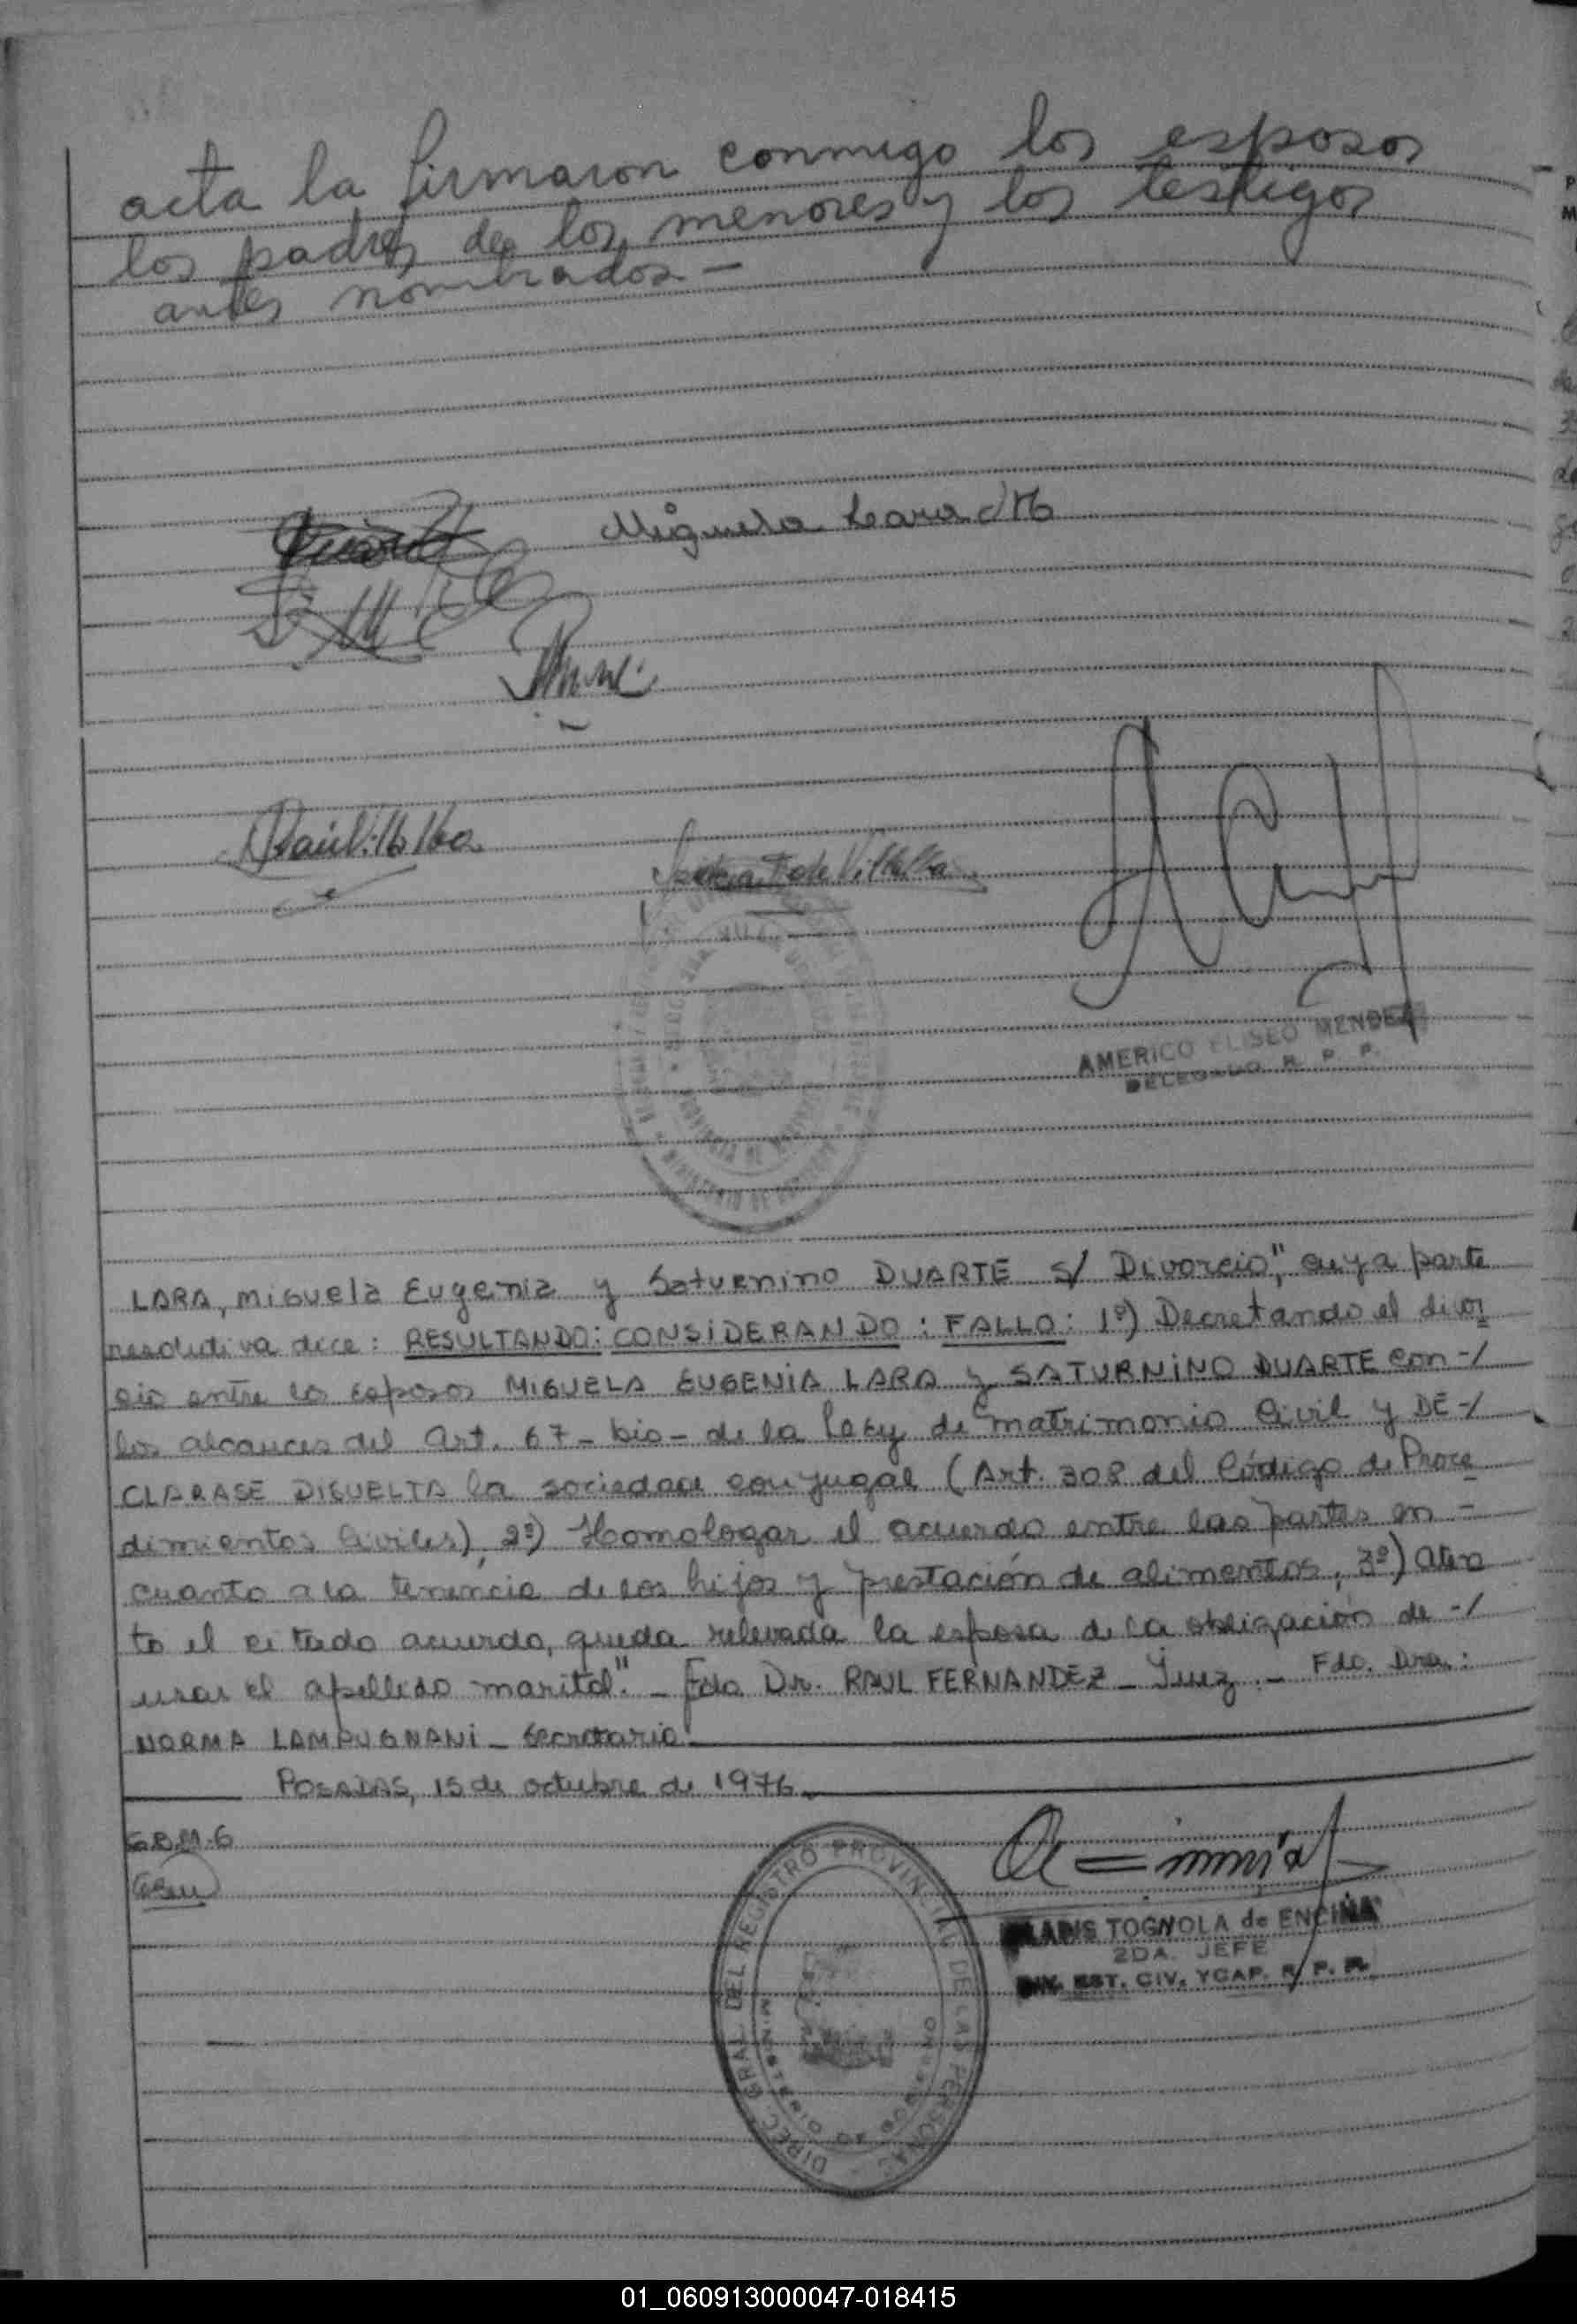 acta la firmaron conmigo los esposos
los padres de los menores y los testigos
antes nombrados. —
Miguela Lara
AMERICO ELISEO MENDEZ
DELEGADO R. P. P.
LARA, Miguela Eugenia y Saturnino DUARTE S/ Divorcio", cuya parte
resolutiva dice: RESULTANDO: CONSIDERANDO: FALLO: 1º) Decretando el divor
cio entre los esposos MIGUELA EUGENIA LARA y SATURNINO DUARTE con-/
los alcances del art. 67-bis- de la Ley de matrimonio Civil y DE-/
CLARASE DISUELTA la sociedad conyugal (Art. 308 del Código de Proce
dimientos Civiles), 2º) Homologar el acuerdo entre las partes en -
cuanto a la tenencia de los hijos y prestación de alimentos, 3º) aten
to el citado acuerdo, queda relevada la esposa de la obligación de -/
usar el apellido marital". - Fdo Dr. RAUL FERNANDEZ - Juez. - Fdo. Dra.:
NORMA LAMPUGNANI - Secretaria.
POSADAS, 15 de octubre de 1976.
G.B.M.-6
DIREC. GRAL. DEL REGISTRO PROVINCIAL DE LAS PERSONAS
MINISTERIO DE GOBIERNO
TOGNOLA de ENCINA
2DA. JEFE
DIV. EST. CIV. Y CAP. R. P. P.
01_060913000047-018415